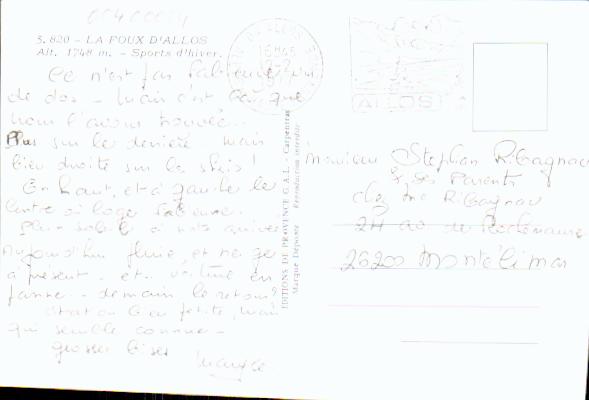 00400004
3. 820 - LA FOUX D'ALLOS
Alt. 1748 m. - Sports d'hiver.
Ce n'est pas Fabienne
de dos - mais c'est là, que
nous l'avons trouvée...
Plus sur le derrière mais
bien droite sur les skis !
En haut, et à gauche le
centre où loge Fabienne.
Plein soleil à notre arrivée
Aujourd'hui pluie, et neige
à présent - et voiture en
panne - demain le retour ?
station bien petite, mais
qui semble connue -
grosses bises
EDITIONS DE PROVENCE G.A.L. - Carpentras
Marque Déposée Reproduction interdite
16H45
ALLOS
Monsieur Stephan Ribagnac
& ses Parents
chez Mr Ribagnac
24 av de
26200 Montélimar